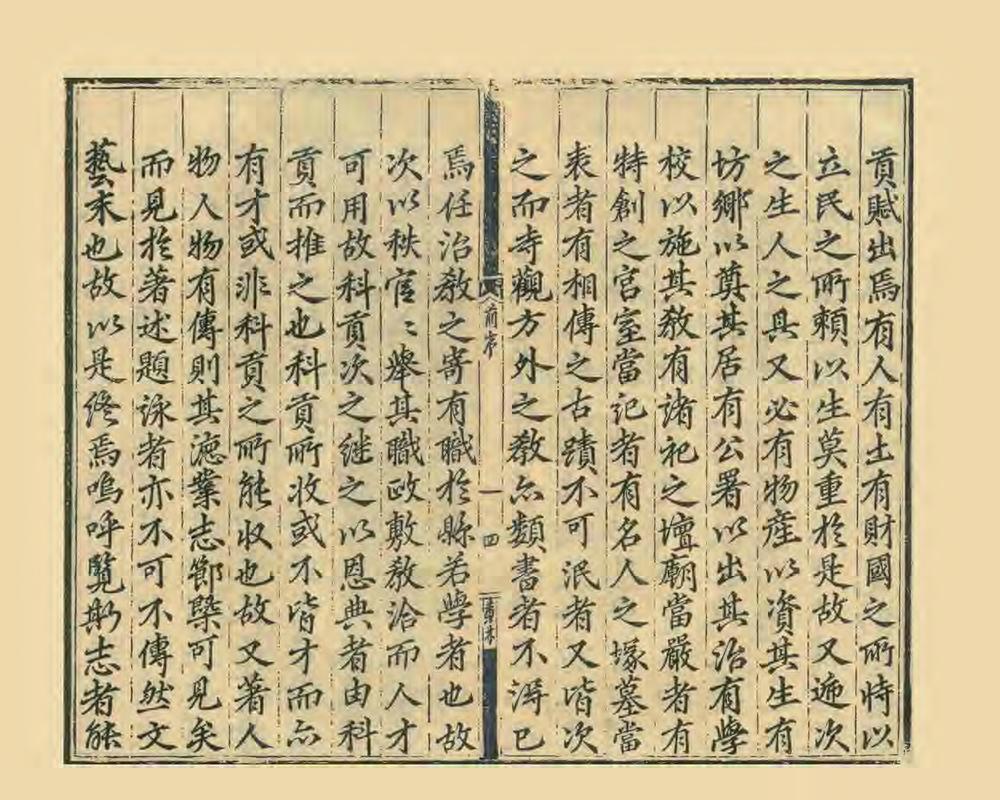 貢賦出焉有人有土有財國之所恃以
立民之所賴以生莫重於是故又遞次
之生人之具又必有物産以資其生有
坊鄉以奠其居有公署以出其治有學
校以施其教有諸祀之壇廟當嚴者有
特創之宮室當記者有名人之塚墓當
表者有相傳之古蹟不可泯者又皆次
之而寺觀方外之教亦類書者不得已
前序
四
焉任治教之寄有職於縣若學者也故
次以秩官秩官舉其職政敷教洽而人才
可用故科貢次之继之以恩典者由科
貢而推之也科貢所收或不皆才而亦
有才或非科貢之所能收也故又著人
物人物有傳則其德業志節槩可見矣
而見於著述題詠者亦不可不傳然文
藝末也故以是終焉嗚呼覽斯志者能